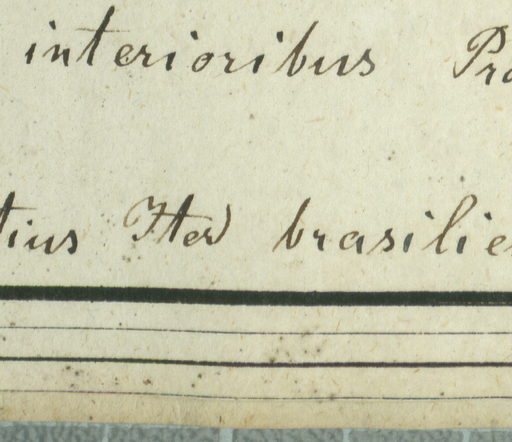 interioribus Pro
tius Iter brasilie